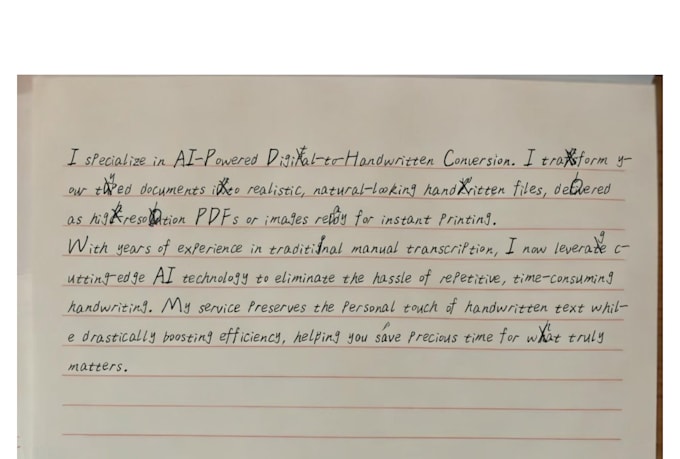 I specialize in AI-Powered Digital-to-Handwritten Conversion. I transform y-
our typed documents into realistic, natural-looking handwritten files, delivered
as high-resolution PDFs or images ready for instant printing.
With years of experience in traditional manual transcription, I now leverage c-
utting-edge AI technology to eliminate the hassle of repetitive, time-consuming
handwriting. My service preserves the personal touch of handwritten text whil-
e drastically boosting efficiency, helping you save precious time for what truly
matters.